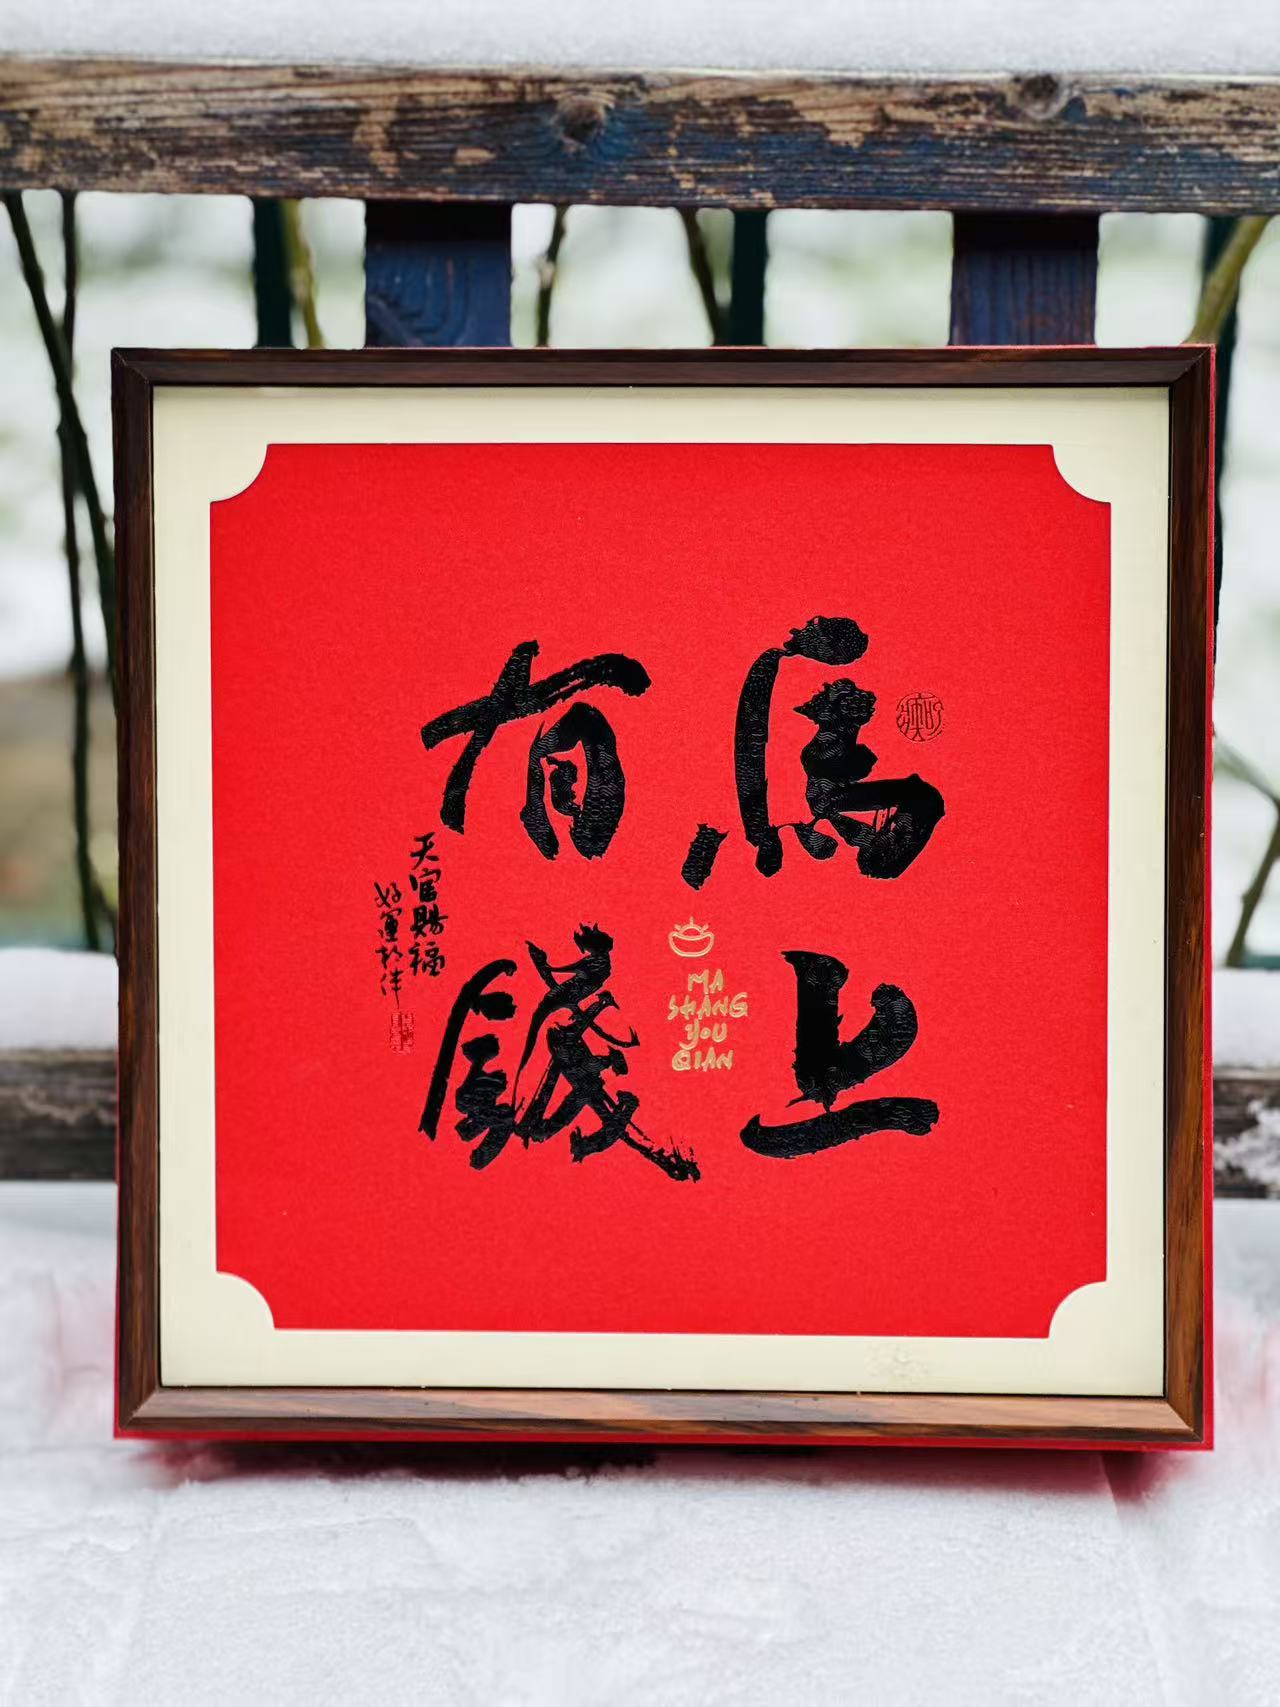 馬上
有錢
MA
SHANG
YOU
QIAN
天官賜福
好運相伴